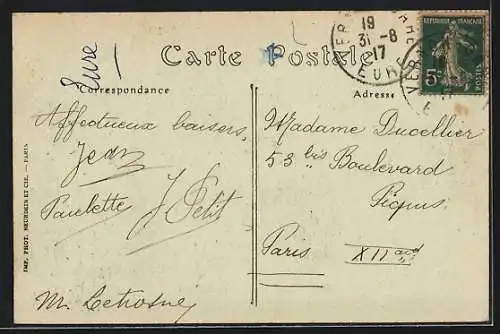 Eure
Carte Postale
Correspondance
Adresse
19
31-8
17
EURE
REPUBLIQUE FRANÇAISE
5c
POSTES
Affectueux baisers
Jean
Paulette
J Petit
M. Letrosne
Madame Ducellier
53 bis Boulevard
Picpus
Paris XII ard
IMP. PHOT. NEURDEIN ET CIE. — PARIS